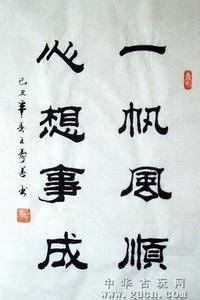 一帆風順
心想事成
己丑年
中华古玩网
www.gucn.com